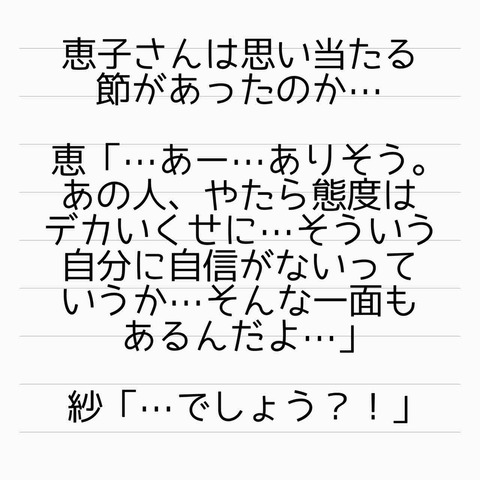 恵子さんは思い当たる
節があったのか…
恵「…あー…ありそう。
あの人、やたら態度は
デカいくせに…そういう
自分に自信がないって
いうか…そんな一面も
あるんだよ…」
紗「…でしょう？！」